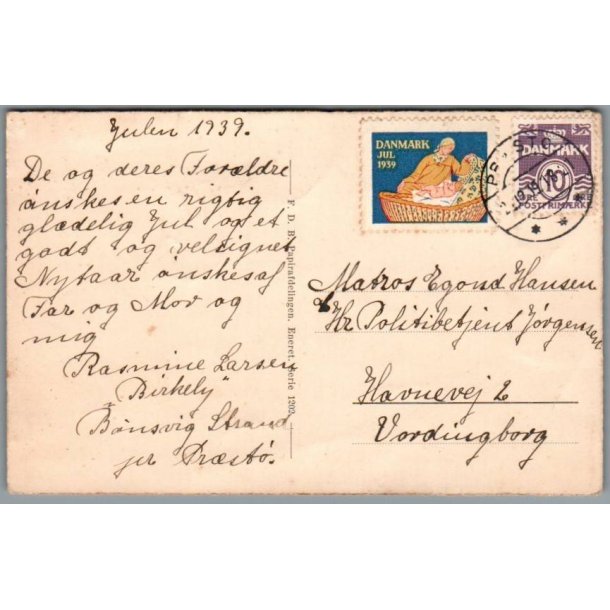 Julen 1939.
De og deres Forældre
ønskes en rigtig
glædelig Jul og et
godt og velsignet
Nytaar ønskes af
Far og Mor og
mig
Rasmine Larsen
"Birkely"
Bønsvig Strand
pr Præstø.
F. D. B. Papirafdelingen. Eneret. Serie 1202
DANMARK
JUL
1939
DANMARK
10
POSTFRIMÆRKE
Matros Egond Hansen
Hr Politibetjent Jørgensen
Havnevej 2
Vordingborg